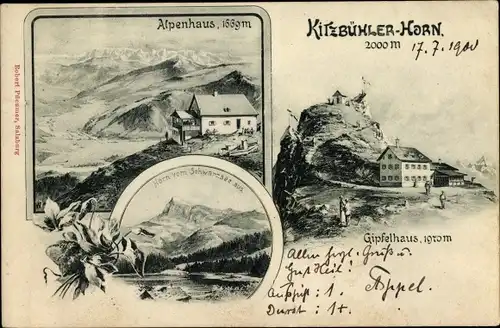 Alpenhaus, 1669m
KITZBÜHLER-HORN.
2000m
17.7.1900
Robert Pürzmer, Salzburg
Horn vom Schwarzsee aus.
Gipfelhaus, 1970m
Allen frgl. Gruß u.
Gut Heil!
Appel.
Aufstift: 1.
Durst: 1+